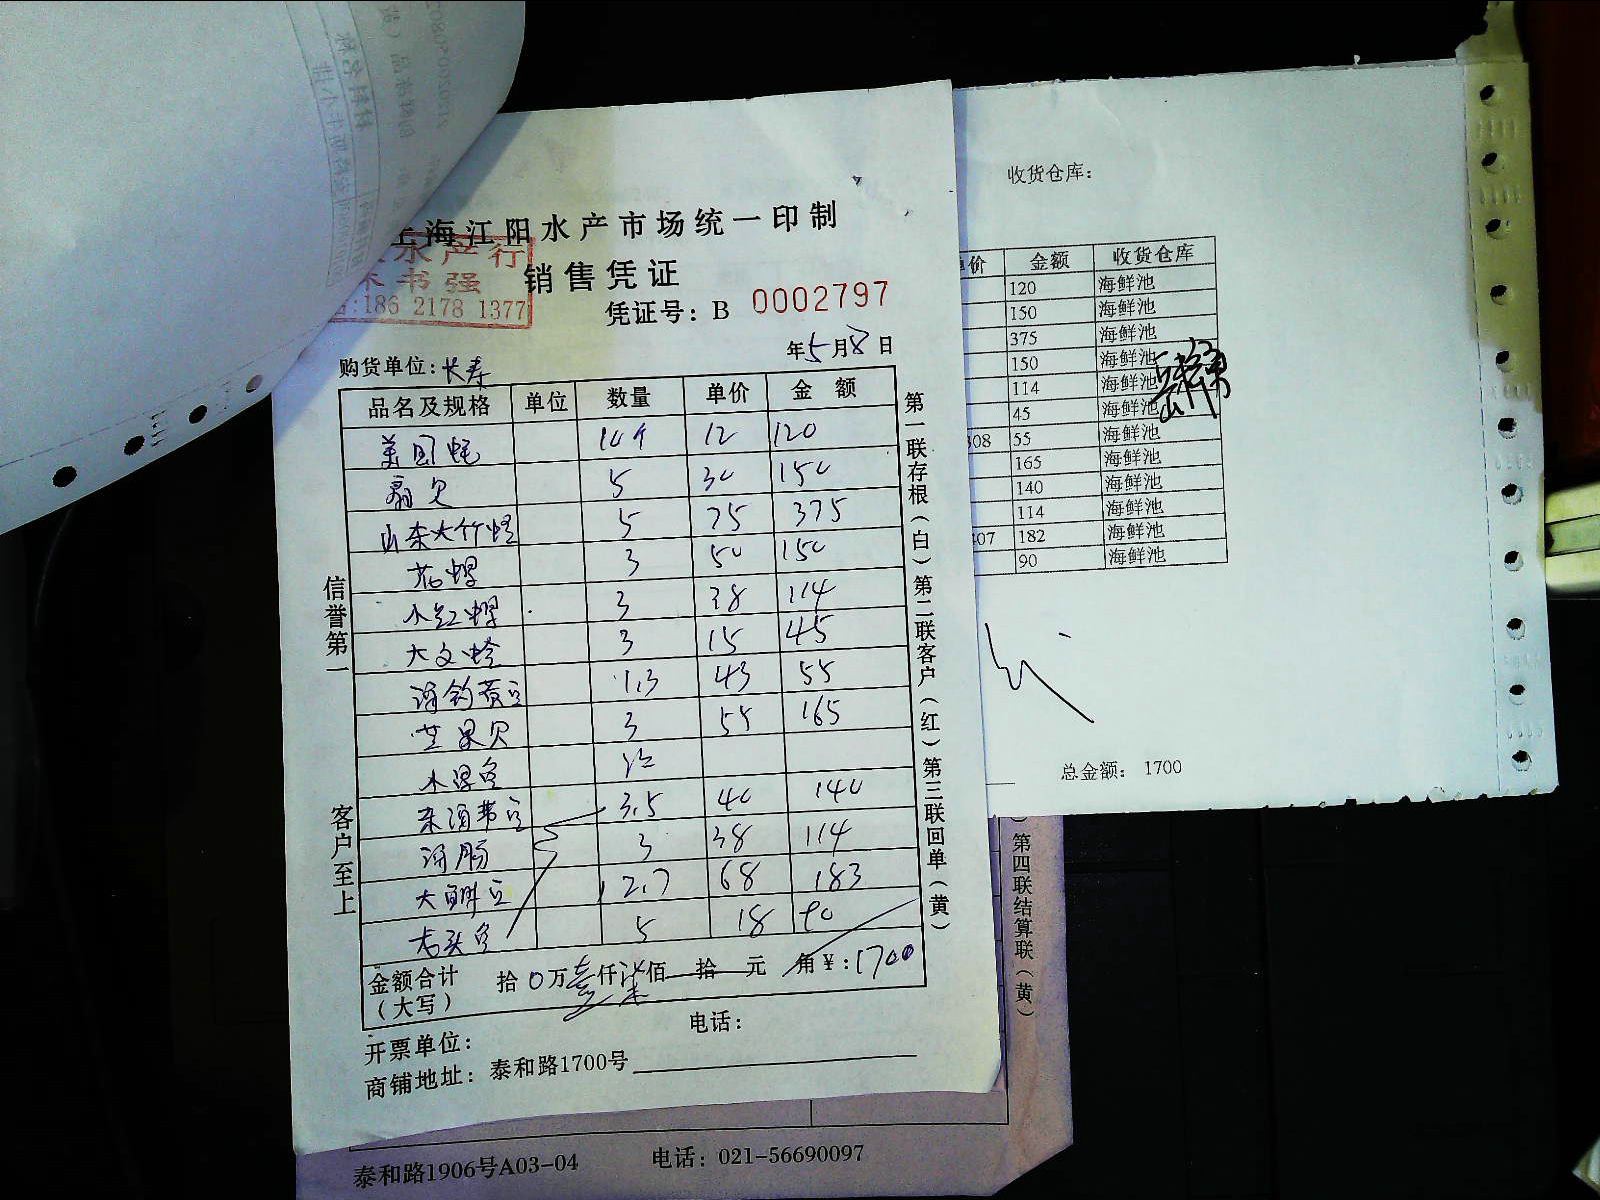 上海江阳水产市场统一印制
水产行
书强
:186 2178 1377
销售凭证
凭证号：B 0002797
年5月8日
购货单位：长寿
品名及规格 单位 数量 单价 金额
美国蚝 10个 12 120
扇贝 5 30 150
山东大竹蛏 5 75 375
花螺 3 50 150
小红螺 3 38 114
大文蛤 3 15 45
1.3 43 55
苹果贝 3 55 165
3.5 40 140
海肠 3 38 114
大 2.7 68 183
石头鱼 5 18 90
金额合计
（大写） 拾0万壹仟柒佰 拾 元 角¥：1700
开票单位： 电话：
商铺地址：泰和路1700号
信誉第一 客户至上
第一联存根（白）第二联客户（红）第三联回单（黄）
收货仓库：
单价 金额 收货仓库
120 海鲜池
150 海鲜池
375 海鲜池
150 海鲜池
114 海鲜池
45 海鲜池
308 55 海鲜池
165 海鲜池
140 海鲜池
114 海鲜池
407 182 海鲜池
90 海鲜池
总金额： 1700
第四联结算联（黄）
泰和路1906号A03-04 电话：021-56690097